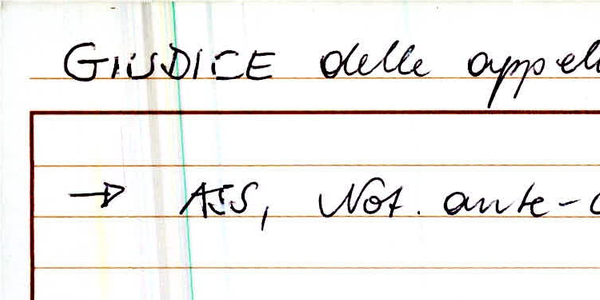 GIUDICE delle appell
→ ASS, Not. ante-c